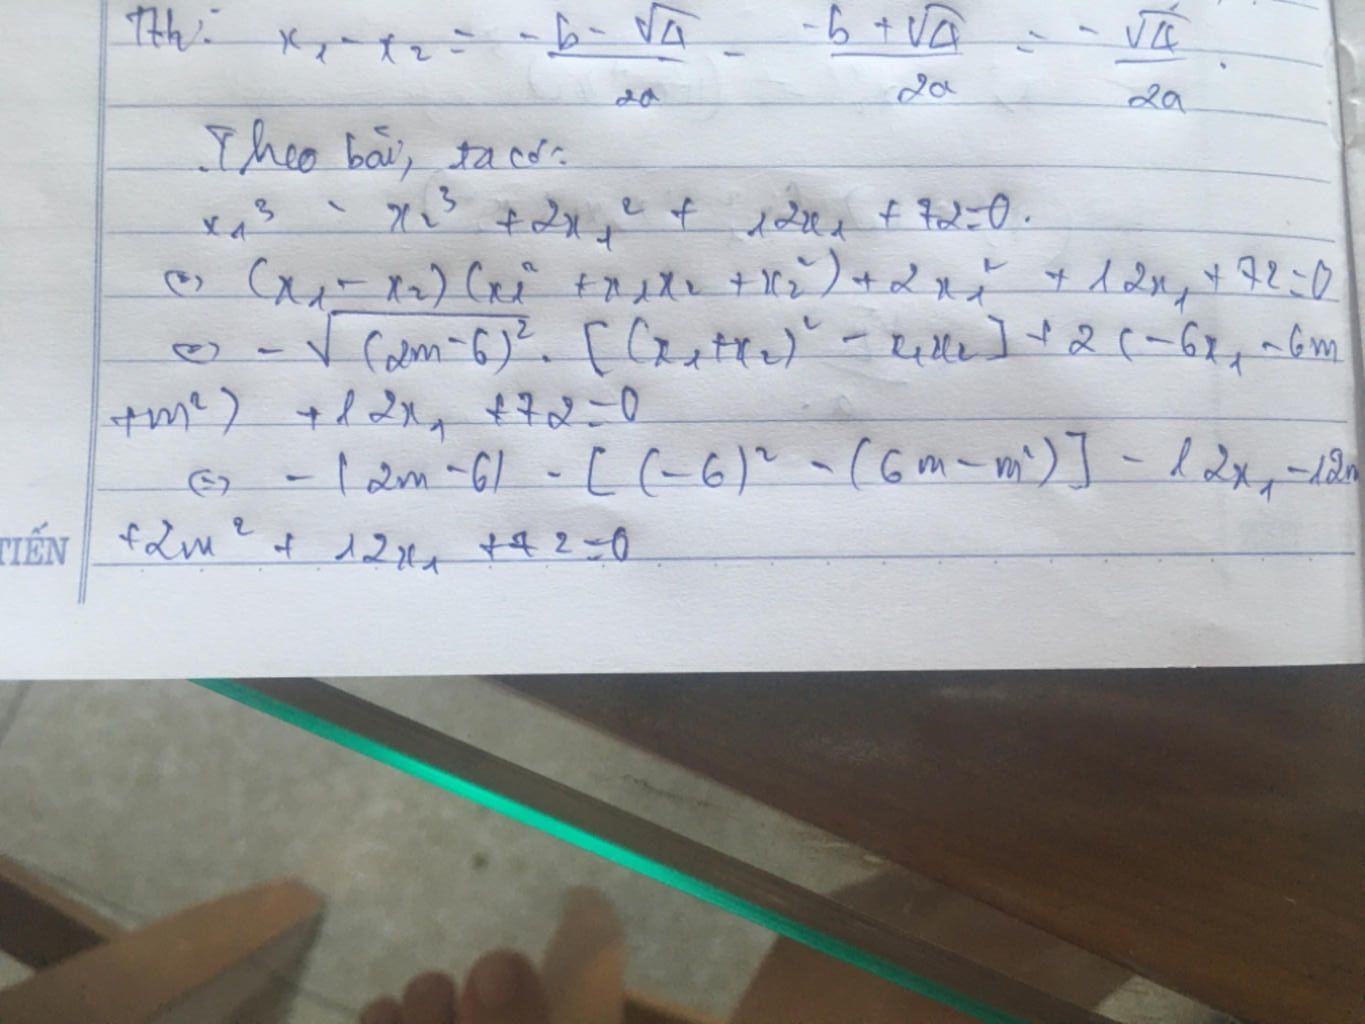 Th: x₁ - x₂ = (-b - √Δ)/2a - (-b + √Δ)/2a = - √Δ/2a.
Theo bài, ta có:
x₁³ - x₂³ + 2x₁² + 12x₁ + 72=0.
⇔ (x₁ - x₂)(x₁² + x₁x₂ + x₂²) + 2x₁² + 12x₁ + 72=0
⇔ -√(2m-6)² . [(x₁+x₂)² - x₁x₂] + 2(-6x₁ -6m
+m²) + 12x₁ + 72=0
⇔ -|2m-6| - [(-6)² - (6m-m²)] - 12x₁ -12m
+2m² + 12x₁ + 72=0
TIẾN